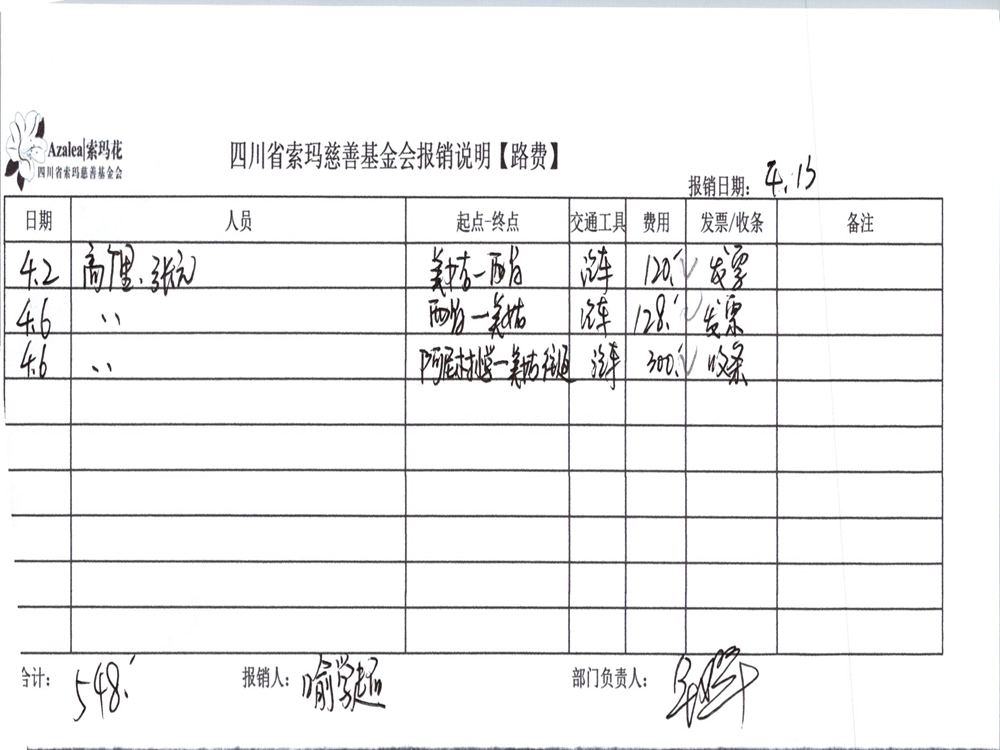 Azalea|索玛花
四川省索玛慈善基金会
四川省索玛慈善基金会报销说明【路费】
报销日期: 4.13
日期 人员 起点-终点 交通工具 费用 发票/收条 备注
4.2 高 里、张元 美姑—西昌 汽车 120. 发票
4.6 〃 西昌—美姑 汽车 128. 发票
4.6 〃 阿尼村小学—美姑往返 汽车 300. 收条
合计: 548. 报销人: 喻学超 部门负责人: